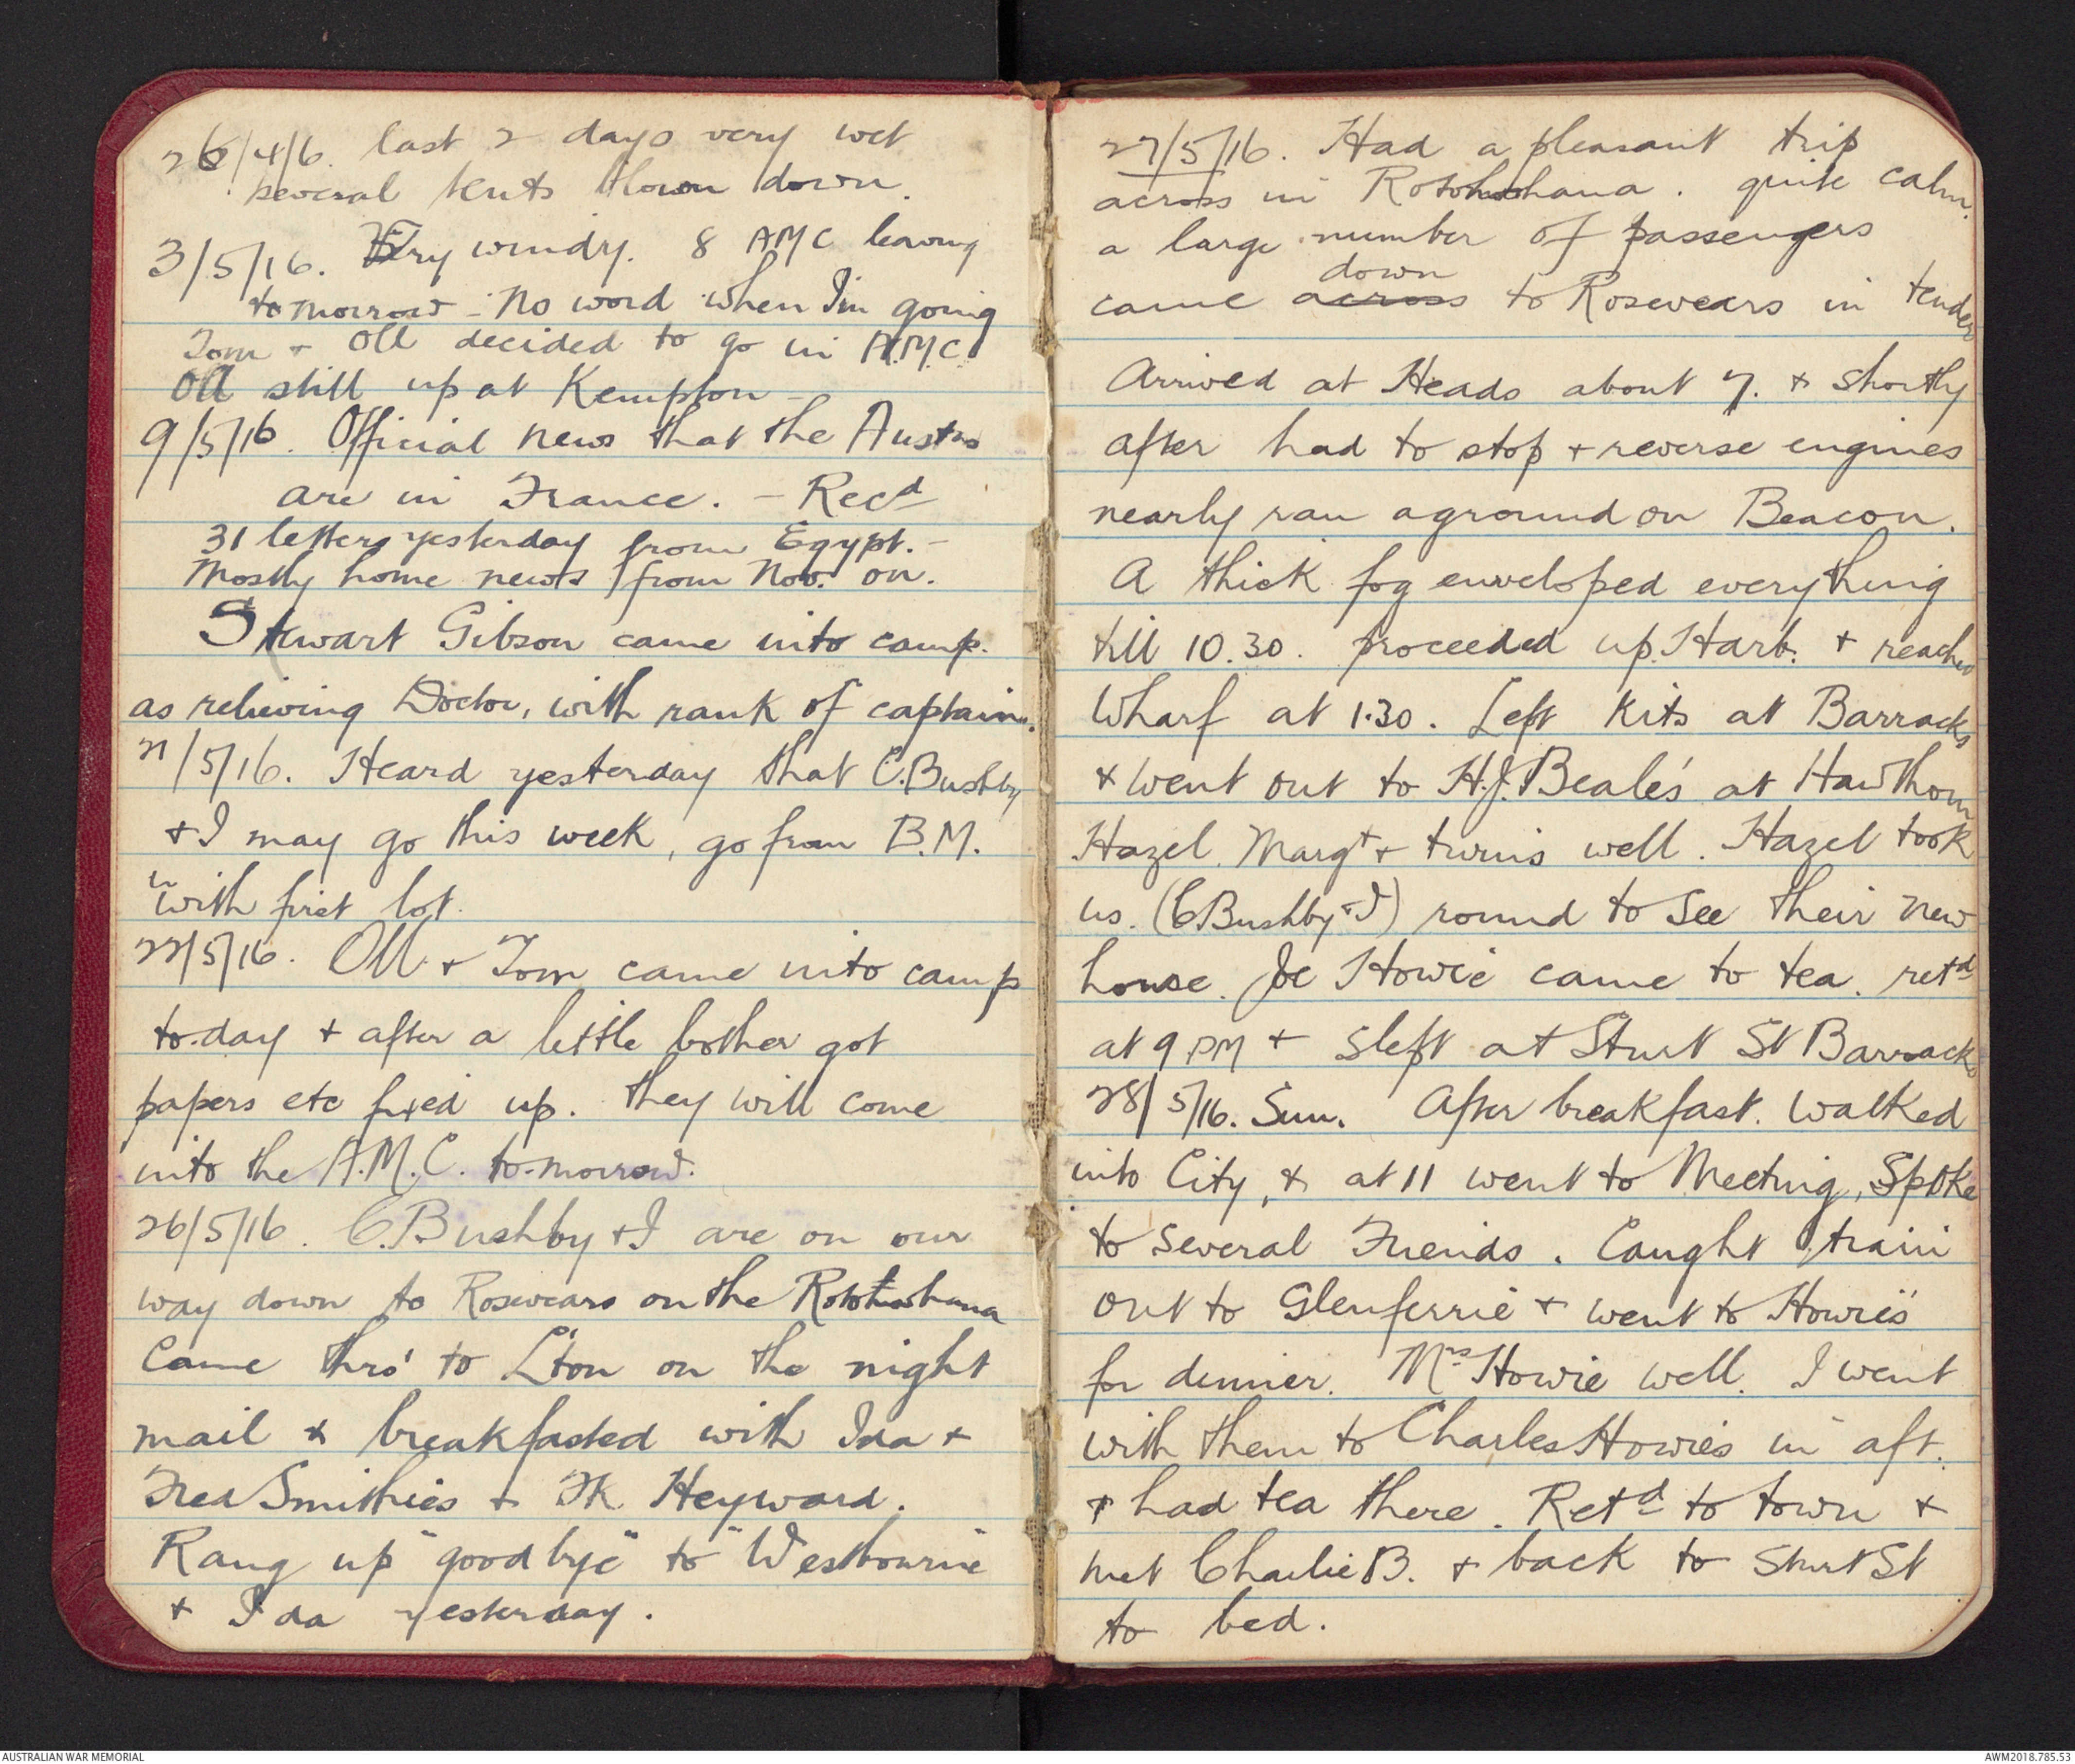 26/4/6. last 2 days very wet
several tents blown down.
3/5/16. Very windy. 8 AMC leaving
to morrow - No word when I'm going
Tom + Oll decided to go in A.M.C.
Oll still up at Kempton -
9/5/16. Official news that the Austns
are in France. - Recd
31 letters yesterday from Egypt. -
Mostly home news from Nov. on.
Stewart Gibson came into camp.
as relieving Doctor, with rank of captain.
21/5/16. Heard yesterday that C.Bushby
+ I may go this week, go from B.M.
with first lot.
22/5/16. Oll + Tom came into camp
to-day + after a little bother got
papers etc fixed up. they will come
into the A.M.C. to-morrow.
26/5/16. C.Bushby + I are on our
way down to Rosevears on the Rotohahana
Came thro' to L'ton on the night
mail + breakfasted with Ida +
Fred Smithies + Fk Heyward.
Rang up "good bye" to "Westbourne"
+ Ida yesterday.
27/5/16. Had a pleasant trip
across in Rotohahana. quite calm.
a large number of passengers
down
came across to Rosevears in tender
Arrived at Heads about 7. + shortly
after had to stop + reverse engines
nearly ran aground on Beacon.
A thick fog enveloped everything
till 10.30. proceeded up Harb. + reached
Wharf at 1.30. Left Kits at Barracks
+ went out to H.J. Beale's at Hawthorn
Hazel. Margt + twins well. Hazel took
us. (CBushby + I) round to see their new
house. Joe Howie came to tea. retd
at 9 PM + slept at Sturt St Barracks
28/5/16. Sun. After breakfast. Walked
into City, + at 11 went to Meeting, Spoke
to several Friends. Caught train
out to Glenferrie + went to Howie's
for dinner. Mrs Howie well. I went
with them to Charles Howie's in aft.
+ had tea there. Retd to town +
met Charlie B. + back to Sturt St
to bed.
AUSTRALIAN WAR MEMORIAL
AWM2018.785.53